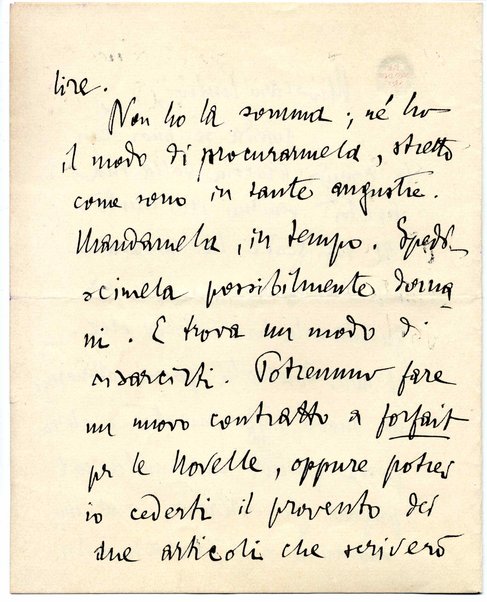 lire.
Non ho la somma; né ho
il modo di procurarmela, stretto
come sono in tante angustie.
Mandamela, in tempo. Spedi-
scimela possibilmente doma-
ni. E trova un modo di
risarcirti. Potremmo fare
un nuovo contratto a forfait
per le Novelle, oppure potrei
io cederti il provento dei
due articoli che scriverò